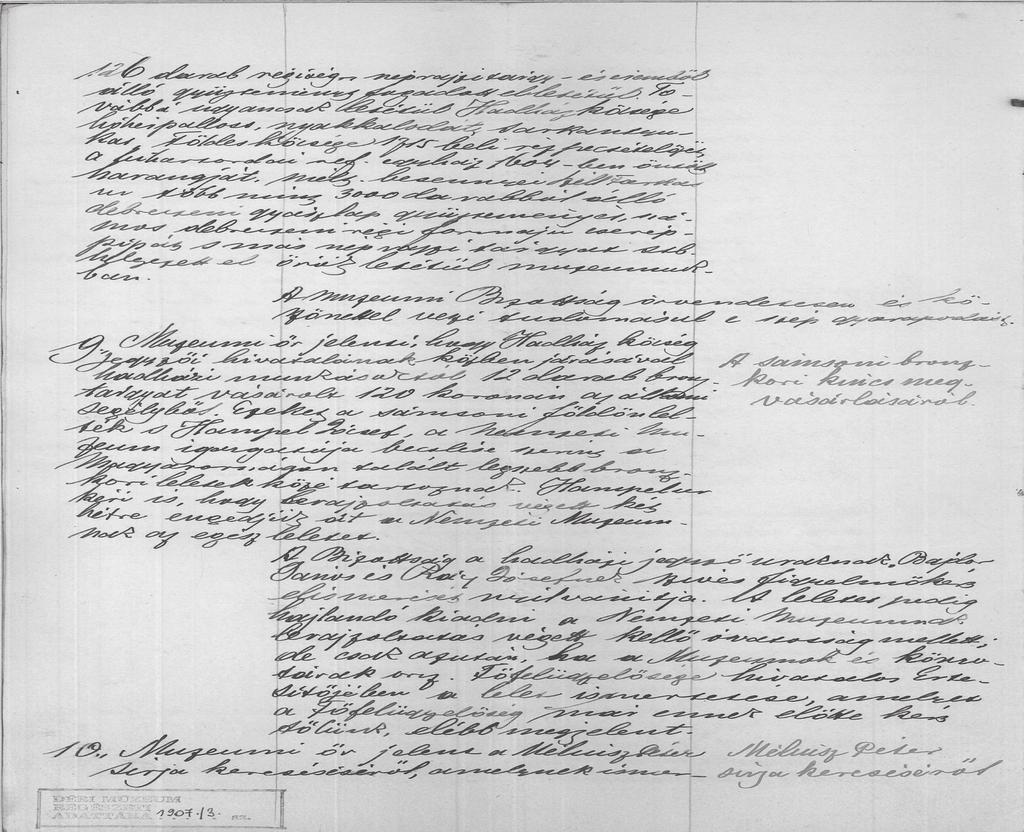 126 darab régiség, néprajzi tárgy- és éremből
álló gyüjtemény fogadott el letétül. To-
vábbá ugyancsak letétül Hadház község
hóhérpallost, nyakkalodát, sarkantyu-
kat Földes község 1715 beli rézpecsételőjét,
a bihartordai ref. egyház 1604-ben öntött
harangját. besenyei Széll Farkas
ur több mint 3000 darabból álló
debreczeni gyászlap gyüjteményét, szá-
mos debreczeni régi formáju cserép-
pipát s más néprajzi tárgyat
helyezett el örök letétül muzeumunk-
ban.
A Muzeumi Bizottság örvendetesen és kö-
szönettel veszi tudomásul e szép gyarapodást.
9. Muzeumi őr jelenti, hogy Hadház község
jegyzői hivatalának közbenjárásával
hadházi munkásoktól 12 darab bronz-
tárgyat vásárolt 120 koronán az állami
segélyből. Ezeket a sámsoni földön lel-
ték s Hampel József, a Nemzeti Mu-
zeum igazgatója becslése szerint a
Magyarországon talált legszebb bronz-
kori leletek közé tartoznak. Hampel ur
kéri is, hogy lerajzoltatás végett két
hétre engedjük át a Nemzeti Muzeum-
nak az egész leletet.
A sámsoni bronz-
kori kincs meg-
vásárlásáról.
A Bizottság a hadházi jegyző uraknak,
János és Rácz Józsefnek szíves figyelmökért
elismerését nyilvánítja. A leletet pedig
hajlandó kiadni a Nemzeti Muzeumnak
lerajzoltatás végett kellő óvatosság mellett;
de csak azután, ha a Muzeumok és könyv-
tárak orsz. Főfelügyelősége hivatalos Érte-
sitőjében a lelet ismertetése, amelyet
a Főfelügyelőség már ennek előtte kért
tőlünk, előbb megjelent.
10. Muzeumi őr jelent a Méliusz Péter
sirja kereséséről, amelynek ismer-
Méliusz Péter
sirja kereséséről
DÉRI MUZEUM
RÉGÉSZETI
ADATTÁRA 1907./3. sz.